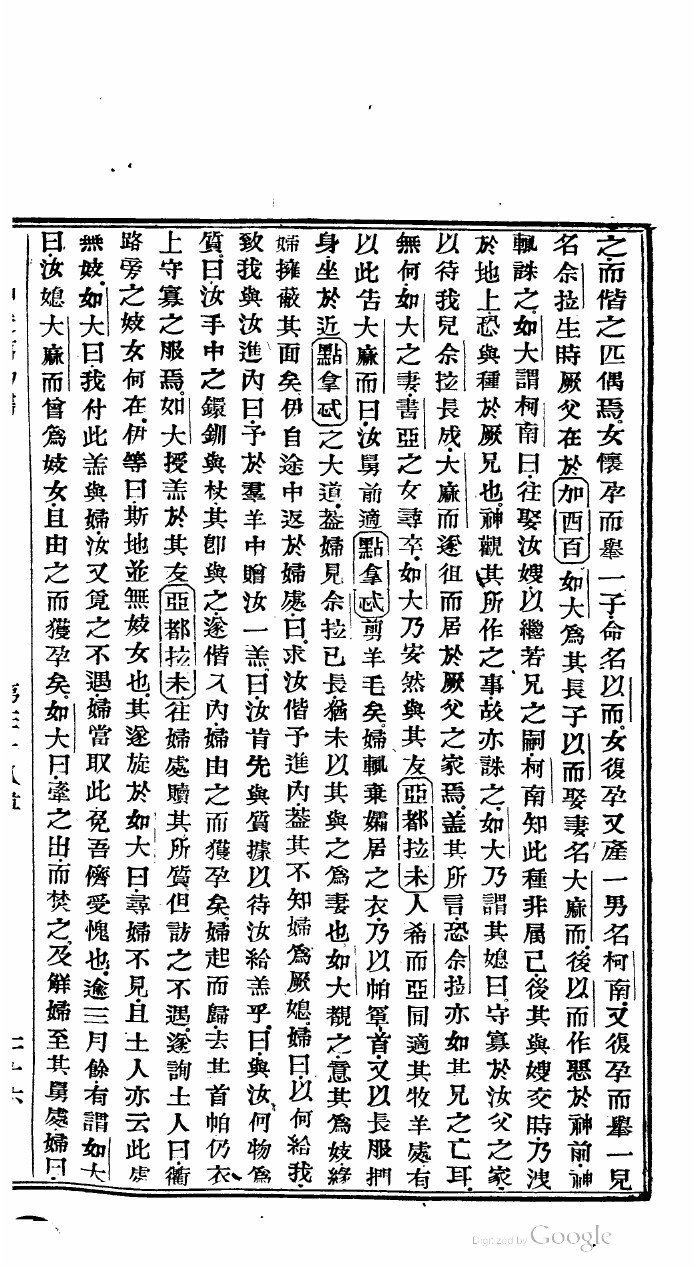 之.而偕之匹偶焉.女懷孕而舉一子命名以而.女復孕又產一男名柯南.又復孕而舉一兒
名佘拉生時厥父在於加西百如大爲其長子以而娶妻名大麻而.後以而作惡於神前.神
輒誅之.如大謂柯南曰.往娶汝嫂.以繼若兄之嗣柯南知此種非属已.後其與嫂交時.乃洩
於地上.恐與種於厥兄也.神觀其所作之事.故亦誅之.如大乃謂其媳曰.守寡於汝父之家
以待我兒佘拉長成.大麻而遂徂而居於厥父之家焉.盖其所言.恐佘拉亦如其兄之亡耳.
無何.如大之妻.書亞之女尋卒.如大乃安然與其友亞都拉未人希而亞同適其牧羊處.有
以此告大麻而曰.汝舅前適點拿忒剪羊毛矣.婦輒棄孀居之衣.乃以帕罩首.又以長服捫
身.坐於近點拿忒之大道.葢婦見佘拉已長.猶未以其與之爲妻也.如大覩之.意其爲妓.緣
婦擁蔽其面矣.伊自途中返於婦處.曰.求汝偕予進內.葢其不知婦爲厥媳.婦曰.以何給我.
致我與汝進內.曰.予於羣羊中贈汝一羔.曰.汝肯先與質據以待汝給羔乎.曰.與汝何物爲
質.曰.汝手中之鐶釧與杖.其卽與之.遂偕入內.婦由之而獲孕矣.婦起而歸.去其首帕.仍衣
上守寡之服焉.如大授羔於其友亞都拉未往婦處贖其所質.但訪之不遇.遂詢土人曰.衢
路旁之妓女何在.伊等曰.斯地並無妓女也.其遂旋於如大曰.尋婦不見.且土人亦云此處
無妓.如大曰.我付此羔與婦.汝又覓之不遇.婦當取此.免吾儕受愧也.逾三月餘.有謂如大
曰.汝媳大麻而曾爲妓女.且由之而獲孕矣.如大曰.牽之出.而焚之.及解婦至其舅處.婦曰.
Digitized by Google